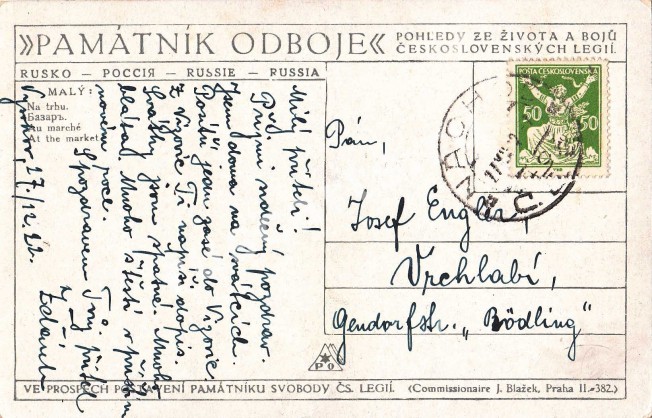 »PAMÁTNÍK ODBOJE«
POHLEDY ZE ŽIVOTA A BOJŮ
ČESKOSLOVENSKÝCH LEGIÍ.
RUSKO — РОССІЯ — RUSSIE — RUSSIA
MALÝ:
Na trhu.
Базаръ.
Au marché
At the market
Milý příteli!
Přijmi srdečný pozdrav.
Jsem doma na svátcích.
Pozítří jedu zase do Vizovic.
Z Vizovic Ti napíši dopis.
Svátky jsou špatné. Mnoho
bláta. Mnoho štěstí v příštím
novém roce.
S pozdravem Tvůj přítel
Vyškov, 27/12.22.
POŠTA ČESKOSLOVENSKÁ
50 50
Pán,
Josef Engler,
Vrchlabí,
Gendorfstr. „Bödling"
PO
VE PROSPĚCH POSTAVENÍ PAMÁTNÍKU SVOBODY ČS. LEGIÍ. (Commissionaire J. Blažek, Praha II.-382.)